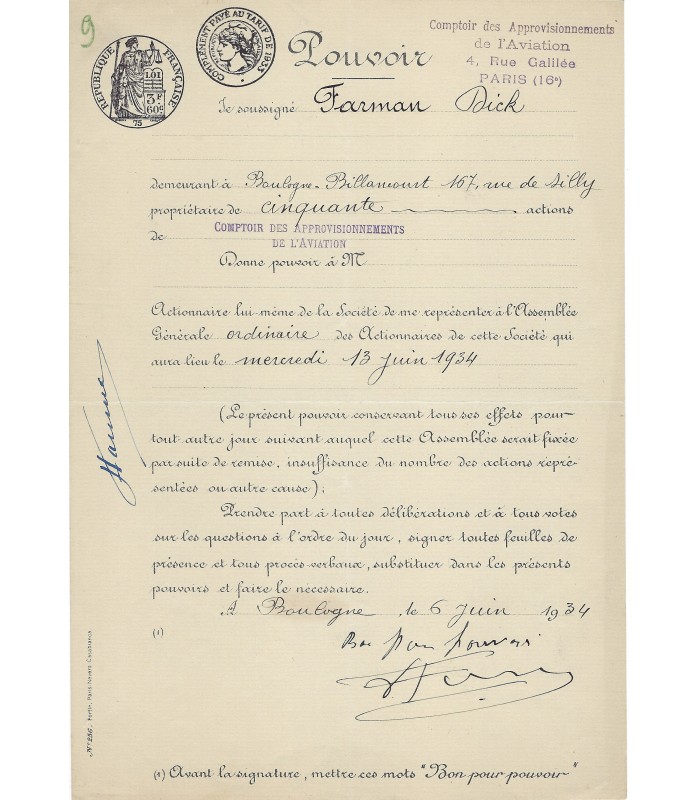 9
RÉPUBLIQUE FRANÇAISE
LOI
3F
60c
75
COMPLÉMENT PAYÉ AU TARIF DE 1933
Pouvoir
Comptoir des Approvisionnements
de l'Aviation
4, Rue Galilée
PARIS (16e)
Je soussigné Farman Dick
demeurant à Boulogne-Billancourt 167, rue de Silly
propriétaire de cinquante actions
de COMPTOIR DES APPROVISIONNEMENTS
DE L'AVIATION
Donne pouvoir à M
Actionnaire lui même de la Société de me représenter à l'Assemblée
Générale ordinaire des Actionnaires de cette Société qui
aura lieu le mercredi 13 juin 1934
(Le présent pouvoir conservant tous ses effets pour
tout autre jour suivant auquel cette Assemblée serait fixée
par suite de remise, insuffisance du nombre des actions repré-
sentées ou autre cause);
Prendre part à toutes délibérations et à tous votes
sur les questions à l'ordre du jour, signer toutes feuilles de
présence et tous procès verbaux, substituer dans les présents
pouvoirs et faire le nécessaire.
A Boulogne le 6 juin 1934
(1)
Bon pour pouvoir
(1) Avant la signature, mettre ces mots "Bon pour pouvoir"
N° 256. Fortin, Paris-Nevers-Casablanca